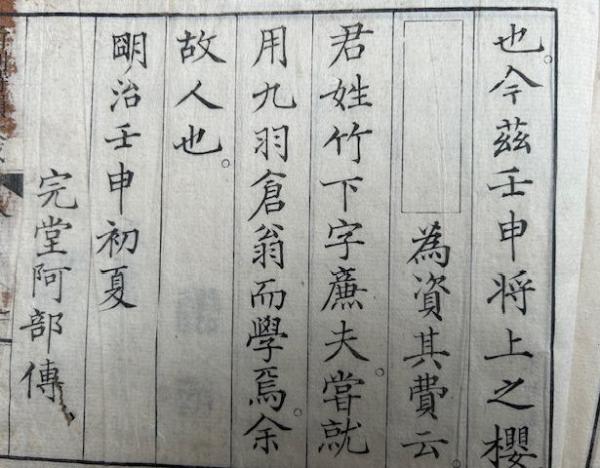 也。今茲壬申将上之櫻
為資其費云。
君姓竹下字廉夫。嘗就
用九羽倉翁而學焉。余
故人也。
明治壬申初夏
完堂阿部傳